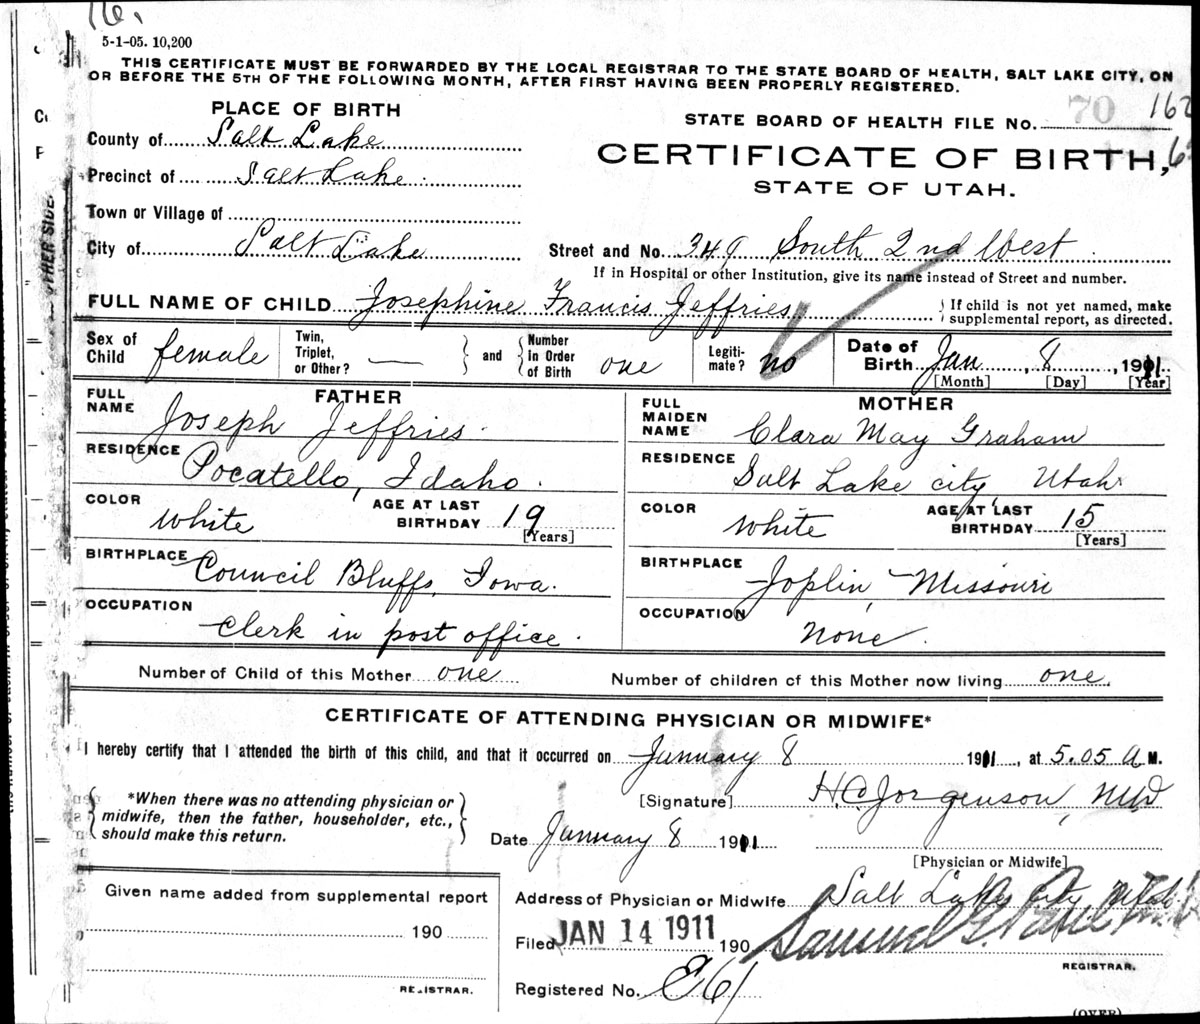 16.
5-1-05. 10,200
THIS CERTIFICATE MUST BE FORWARDED BY THE LOCAL REGISTRAR TO THE STATE BOARD OF HEALTH, SALT LAKE CITY, ON
OR BEFORE THE 5TH OF THE FOLLOWING MONTH, AFTER FIRST HAVING BEEN PROPERLY REGISTERED.
PLACE OF BIRTH
STATE BOARD OF HEALTH FILE No. 70 162
County of Salt Lake
CERTIFICATE OF BIRTH,
Precinct of Salt Lake
STATE OF UTAH.
Town or Village of
City of Salt Lake
Street and No. 349 South 2nd West
If in Hospital or other Institution, give its name instead of Street and number.
FULL NAME OF CHILD Josephine Francis Jeffries
If child is not yet named, make
supplemental report, as directed.
Sex of Child female
Twin, Triplet, or Other? —
and
Number In Order of Birth one
Legiti-mate? no
Date of Birth Jan, 8, 1911
[Month] [Day] [Year]
FATHER
FULL NAME Joseph Jeffries.
RESIDENCE Pocatello, Idaho.
COLOR White
AGE AT LAST BIRTHDAY 19
[Years]
BIRTHPLACE Council Bluffs, Iowa.
OCCUPATION Clerk in post office.
MOTHER
FULL MAIDEN NAME Clara May Graham
RESIDENCE Salt Lake city, Utah
COLOR White
AGE AT LAST BIRTHDAY 15
[Years]
BIRTHPLACE Joplin, Missouri
OCCUPATION None.
Number of Child of this Mother one
Number of children of this Mother now living one.
CERTIFICATE OF ATTENDING PHYSICIAN OR MIDWIFE*
I hereby certify that I attended the birth of this child, and that it occurred on January 8 1911, at 5.05 A M.
*When there was no attending physician or
midwife, then the father, householder, etc.,
should make this return.
[Signature] H C Jorgenson, MD
Date January 8 1911
[Physician or Midwife]
Given name added from supplemental report
190
REGISTRAR.
Address of Physician or Midwife Salt Lake City Utah
Filed JAN 14 1911 190 Samuel G. Paul
REGISTRAR.
Registered No. E61
(OVER)